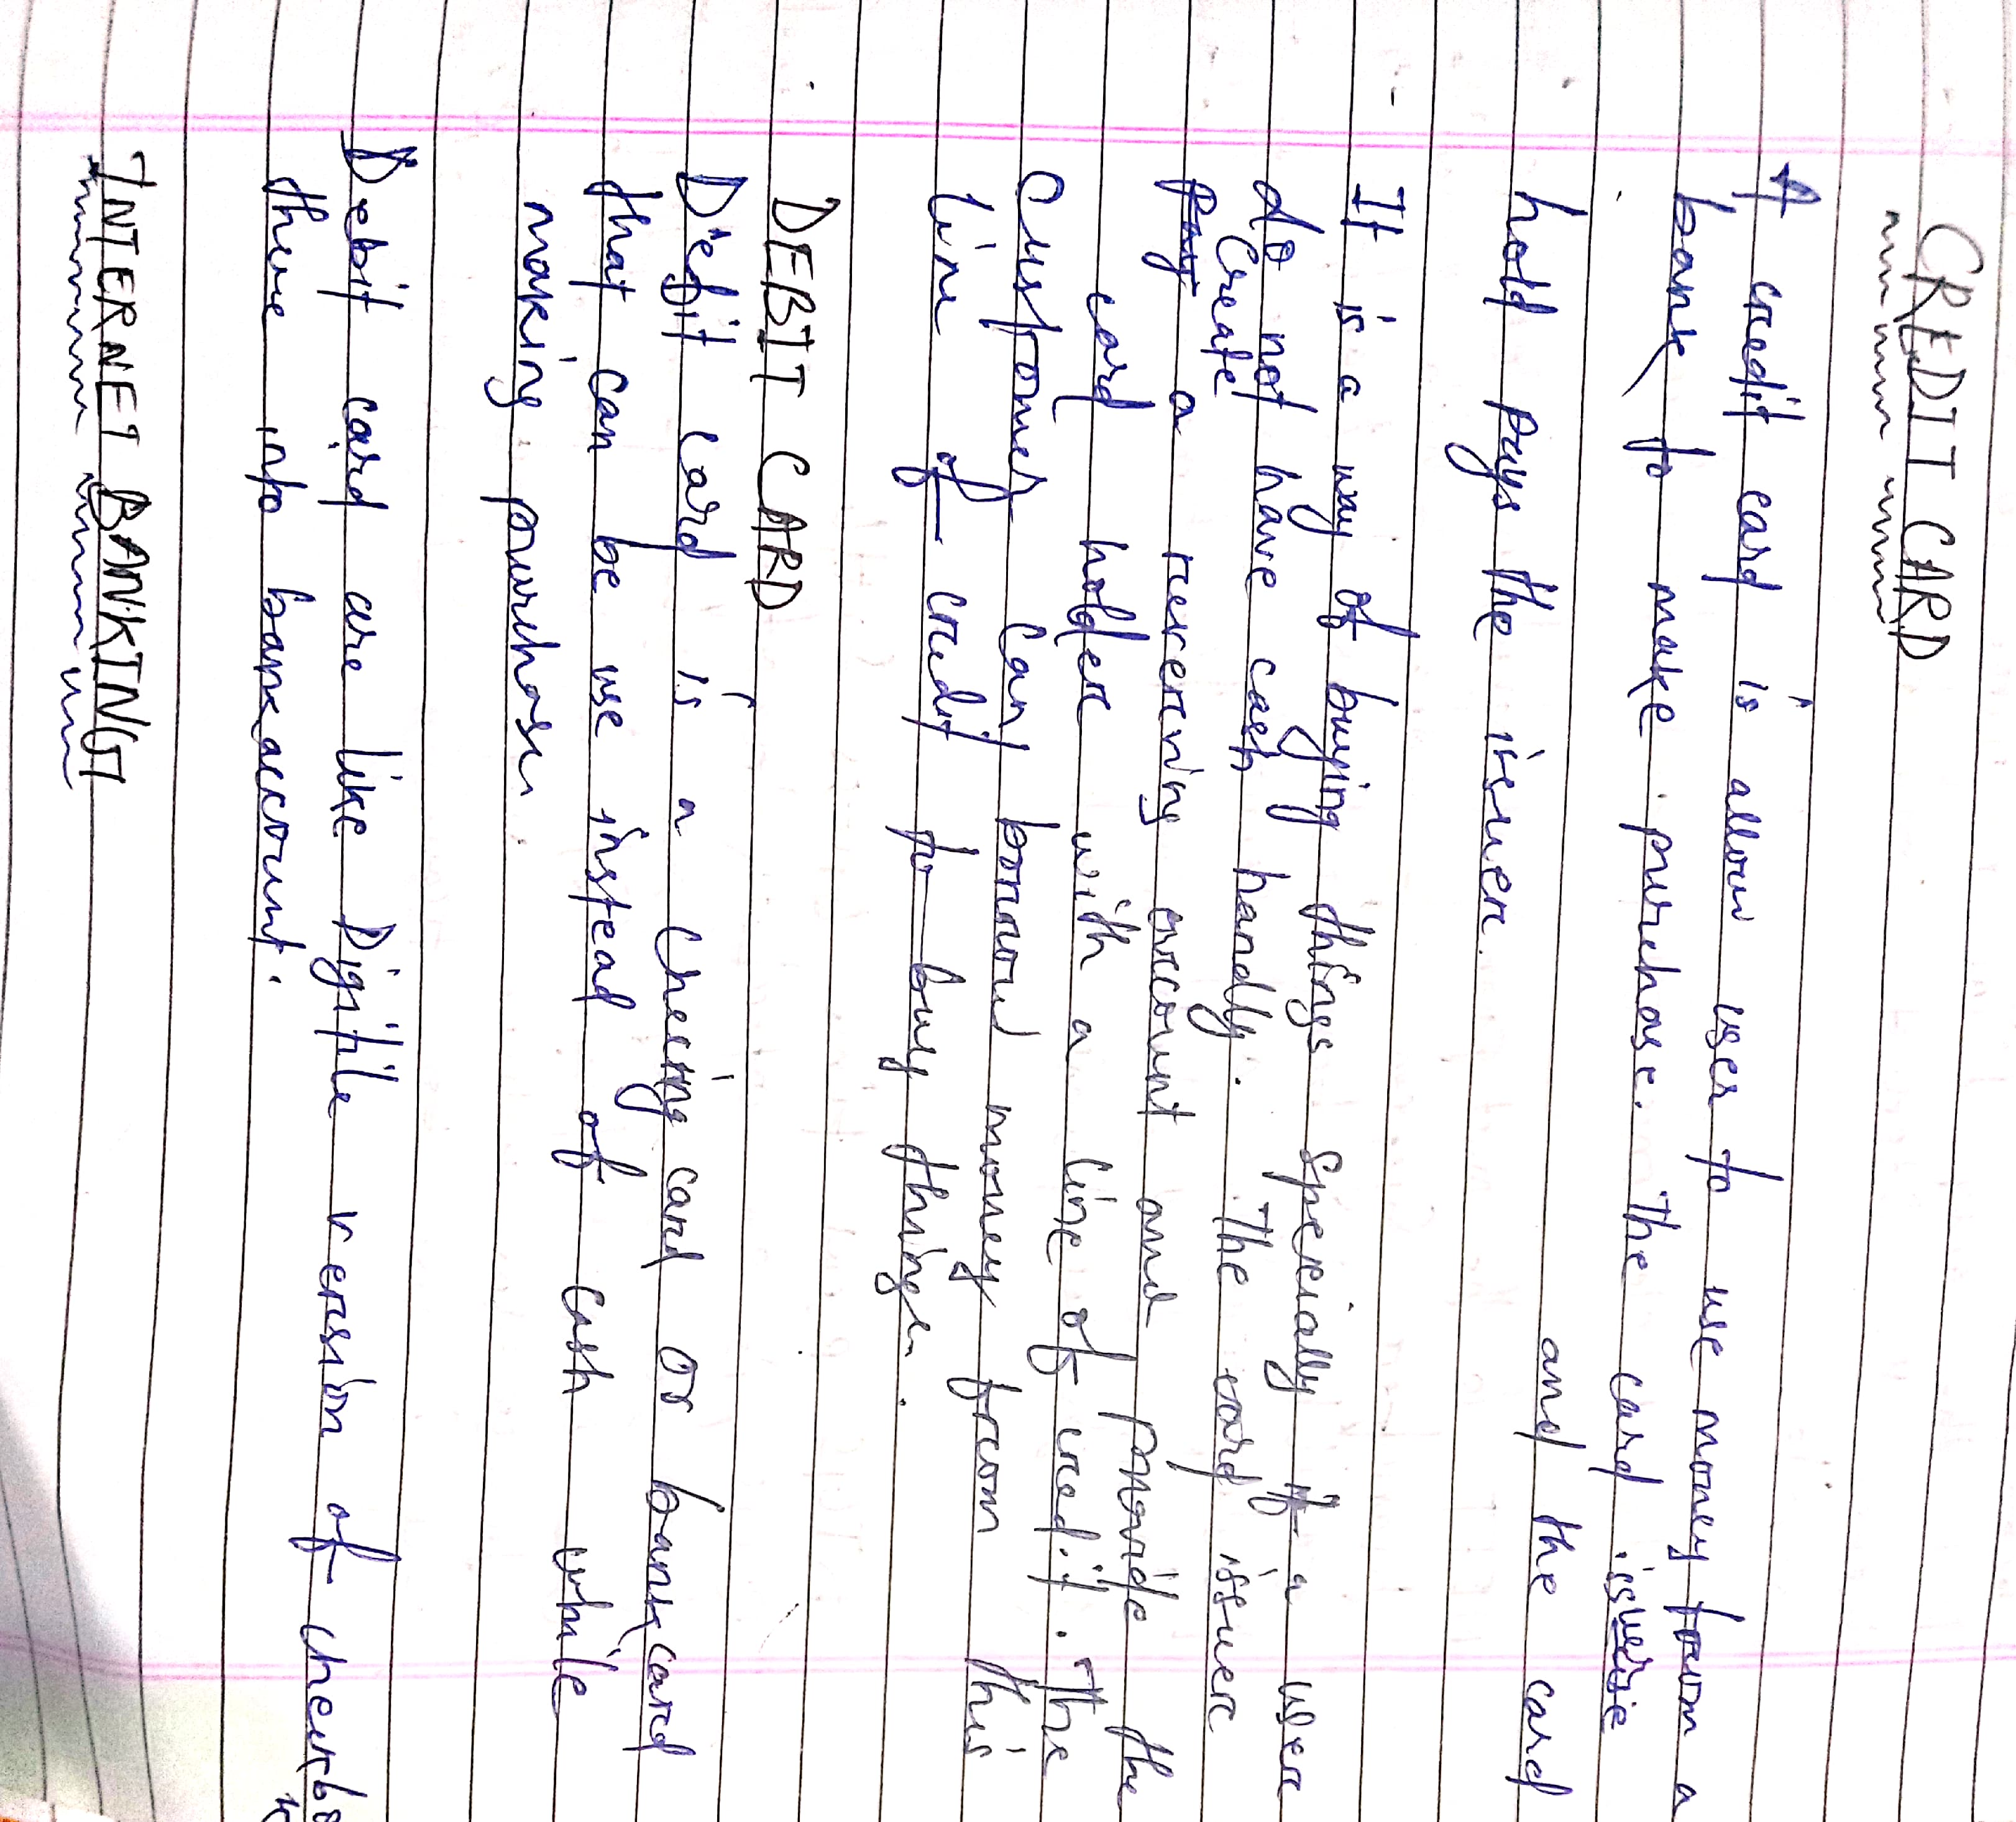 CREDIT CARD
A credit card is allow user to use money from a
bank to make purchase. The card issuerie
and the card
hold pays the issuer.
It is a way of buying things specially if a user
do not have cash handly. The card issuer
Create
Pay a revercving account and provide the
card holder with a line of credit. The
Customer can borrow money from this
line of credit to buy things.
DEBIT CARD
Debit card is a checking card or bank card
that can be use instead of cash while
making purchase.
Debit card are like Digitile version of check bo
k
there info bank account.
INTERNET BANKING